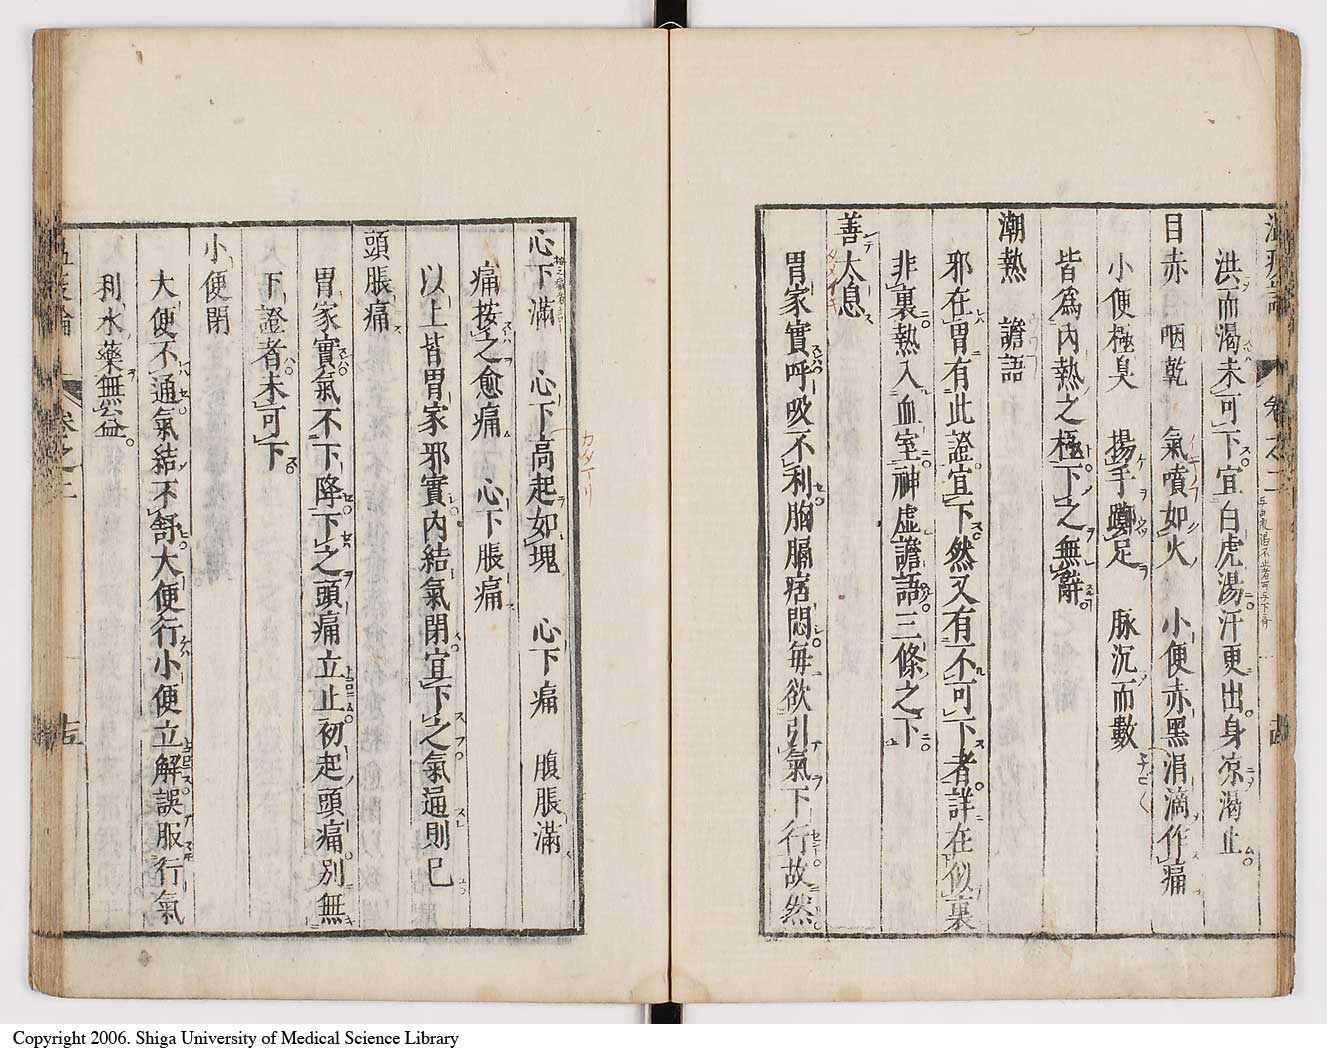 洪而渴未可下宜白虎湯汗更出身凉渴止
目赤 咽乾 氣噴如火 小便赤黑涓滴作痛
小便極臭 揚手躑足 脉沉而數
皆爲內熱之極下之無辭
潮熱 譫語
邪在胃有此證宜下然又有不可下者詳在似裏
非裏熱入血室神虛譫語三條之下
善太息
胃家實呼吸不利胸膈痞悶每欲引氣下行故然
心下滿 心下高起如塊 心下痛 腹脹滿
痛按之愈痛 心下脹痛
以上皆胃家邪實內結氣閉宜下之氣通則已
頭脹痛
胃家實氣不下降下之頭痛立止初起頭痛別無
下證者未可下
小便閉
大便不通氣結不舒大便行小便立解誤服行氣
利水藥無益。
Copyright 2006. Shiga University of Medical Science Library